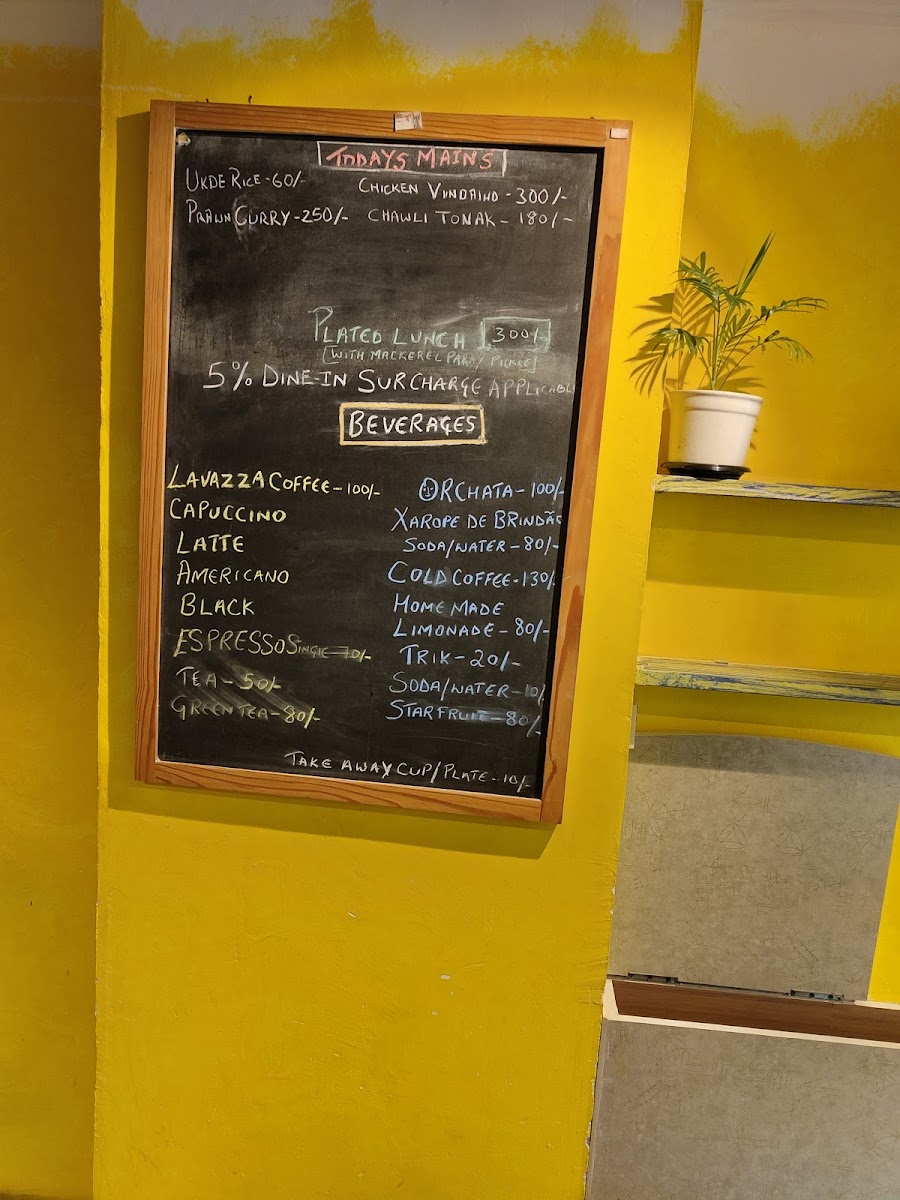 TODAYS MAINS
UKDE RICE - 60/-
CHICKEN VINDAHO - 300/-
PRAWN CURRY - 250/-
CHAWLI TONAK - 180/-
PLATED LUNCH 300/-
[WITH MACKEREL PARA/ PICKLE]
5% DINE-IN SURCHARGE APPLICABL
BEVERAGES
LAVAZZA COFFEE - 100/-
CAPUCCINO
LATTE
AMERICANO
BLACK
ESPRESSO SINGLE - 70/-
TEA - 50/-
GREEN TEA - 80/-
ORCHATA - 100/-
XAROPE DE BRINDÃO
SODA/WATER - 80/-
COLD COFFEE - 130/-
HOME MADE
LIMONADE - 80/-
TRIK - 20/-
SODA/WATER - 10/
STARFRUIT - 80/-
TAKE AWAY CUP/PLATE - 10/-